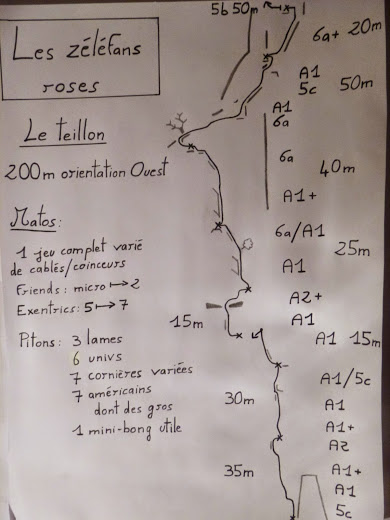 Les zéléfans
roses
Le teillon
200m orientation Ouest
Matos:
1 jeu complet varié
de cablés/coinceurs
Friends: micro ↦ 2
Exentrics: 5 ↦ 7
Pitons: 3 lames
6 univs
7 cornières variées
7 américains
dont des gros
1 mini-bong utile
5b 50m
6a+ 20m
A1
5c 50m
A1
6a
6a
40m
A1+
6a/A1
25m
A1
A2+
15m A1
A1 15m
A1/5c
30m A1
A1+
A2
35m A1+
A1
5c